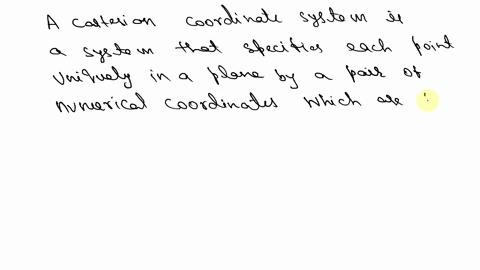 A casterian coordinate system is
a system that specifies each point
uniquely in a plane by a pair of
numerical coordinates which are